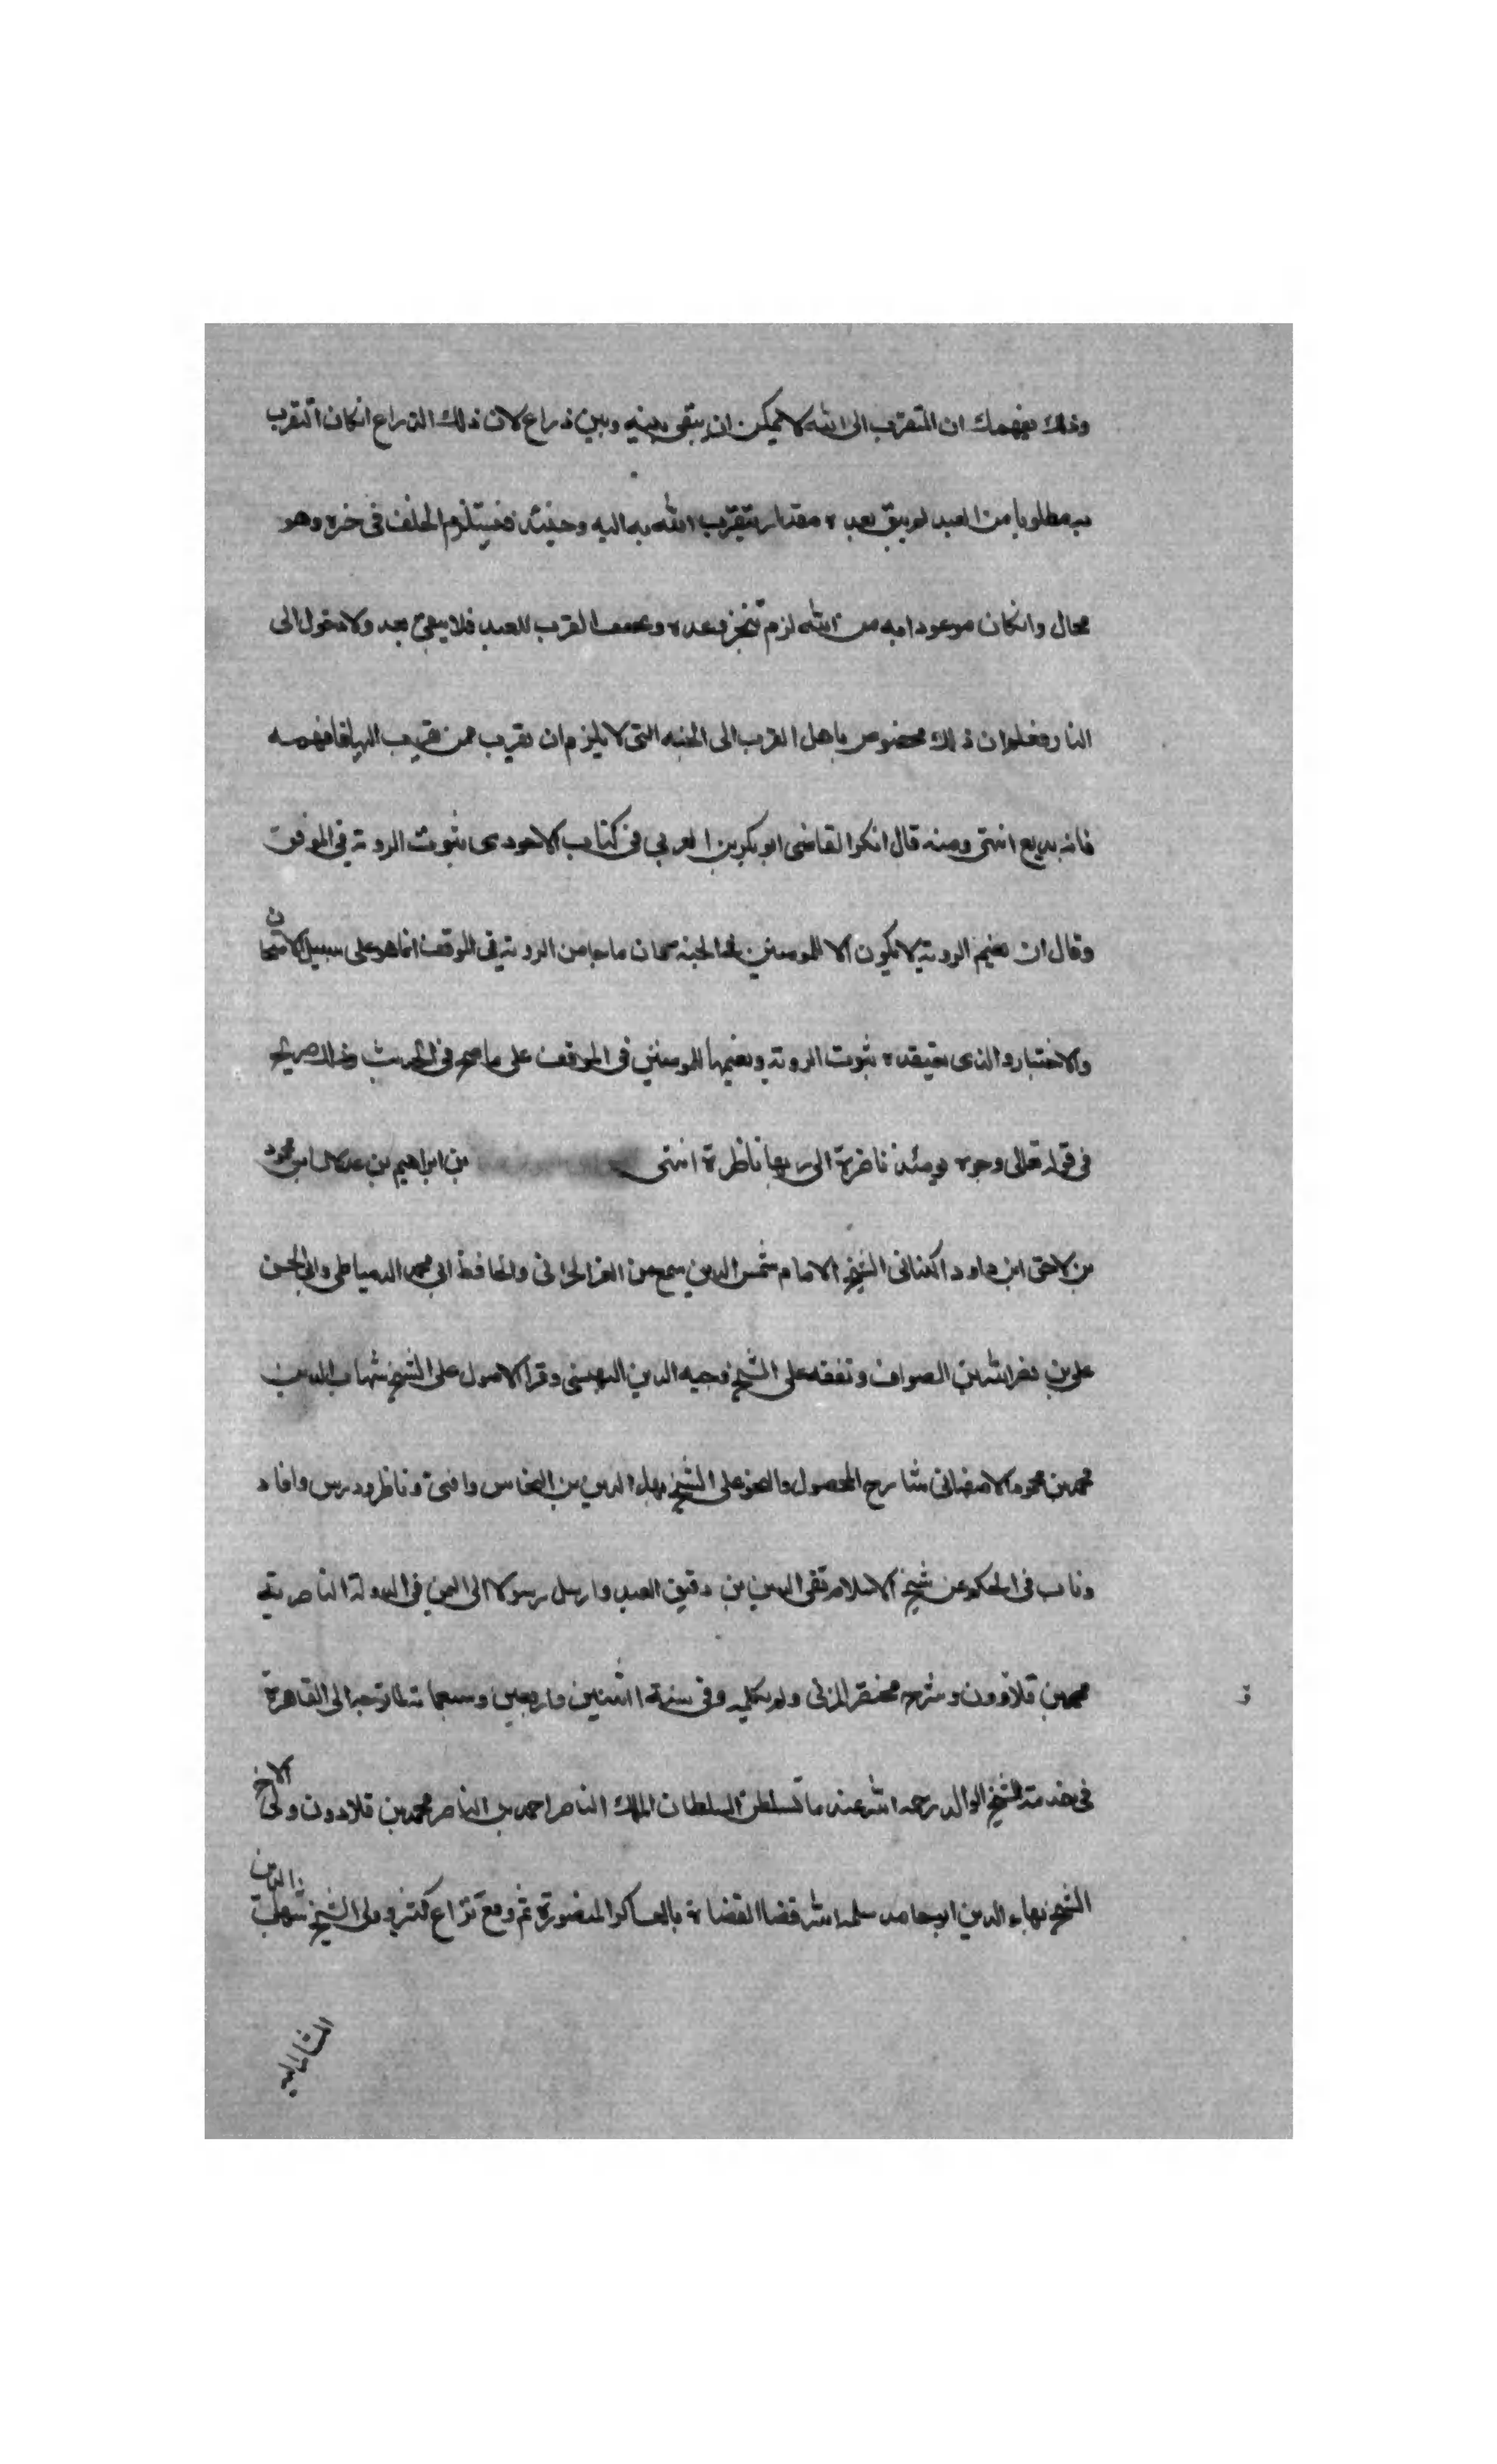 وذلك يفهمك ان المتقرب الى الله لا يمكن ان يبقى بينه وبين ذراع لان ذلك الذراع انكان التقرب
به مطلوبا من العبد لم يبق بعده مقدار يتقرب الله به اليه وحينئذ فيستلزم الخلف في خبره وهو
محال وانكان موعودا به من الله لزم تنجز وعده و القرب للعبد فلا يبقى بعد ولا دخول الى
النار فعلم ان ذلك مخصوص باهل القرب الى الجنه التى لا يلزم ان يقرب ممن قريب اليها فافهمه
فانه بديع انتهى ومنه قال انكر القاضى ابو بكر بن العربي في كتاب الاحودى ثبوت الروية في الموقف
وقال ان نعيم الروية لا يكون الا للمومنين الجنة ان ما جا من الروية في الموقف انما هو على سبيل الامتحان
والاختبار والذى نعتقده ثبوت الروية ونعيمها للمومنين في الموقف على ما صح في الحديث وذلك صريح
في قوله تعالى وجوه يومئذ ناضرة الى ربها ناظرة انتهى بن ابراهيم بن عدلان ابن محمود
بن لاحق ابن داود الكنانى الشيخ الامام شمس الدين سمع من العز الحرانى والحافظ ابي محمد الدمياطى وابي الحسن
على بن نصر الله بن الصواف وتفقه على الشيخ وجيه الدين البهنسى وقرا الاصول على الشيخ شهاب الدين
محمد بن محمود الاصفهانى شارح المحصول والنحو على الشيخ بهاء الدين بن النحاس وافتى وناظر ودرس وافاد
وناب في الحكم عن شيخ الاسلام تقى الدين بن دقيق العيد وارسل رسولا الى اليمن في الدولة الناصرية
محمد بن قلاوون وشرح مختصر المزنى ولم يكمله وفى سنة اثنين واربعين وسبعماية توجه الى القاهرة
في خدمة الشيخ الوالد رحمه الله عند ما تسلطن السلطان الملك الناصر احمد بن الناصر محمد بن قلاوون ولى الاخ
الشيخ بهاء الدين ابو حامد سلمه الله قضا القضاة بالعساكر المنصورة ثم وقع نزاع كثير وولى الشيخ شهاب الدين
المشار اليه